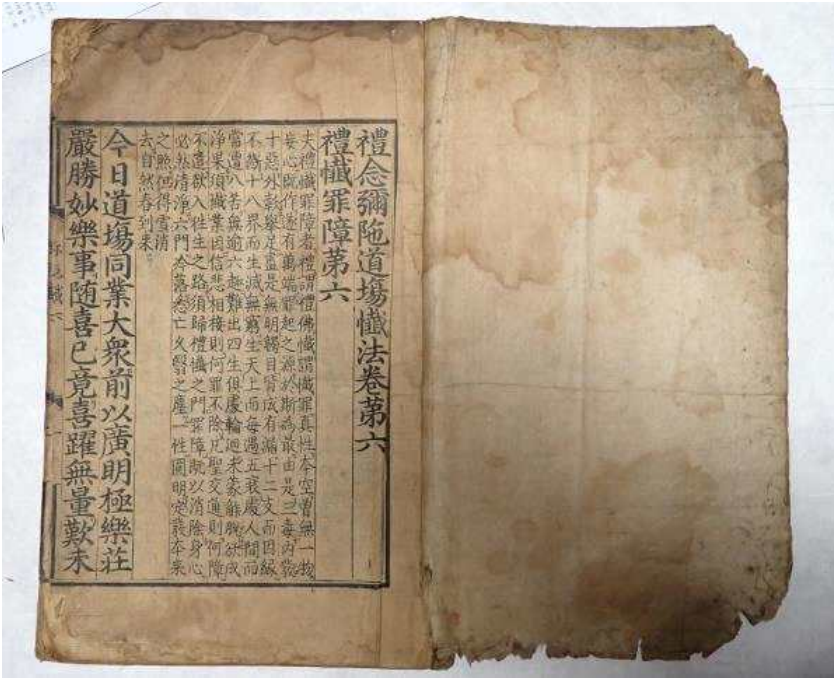 禮念彌陁道塲懺法卷第六
禮懺罪障第六
夫禮懺罪障者禮謂禮佛懺謂懺罪真性本空曾無一物
妄心旣作遂有萬端罪起之源於斯爲最由是三毒內
十惡外彰擧足盡是無明觸目皆成有漏十二支而因緣
不斷十八界而生滅無窮生天上而每遇五衰處人間而
當遭八苦無逾六趣難出四生但處輪迴未蒙解脫欲成
淨果須懺業因信悲相接則何罪不除凡聖交通則何障
不遣欲入徃生之路須歸禮懺之門罪障旣以消除身心
必然清淨六門冷落悉亡久翳之塵一性圓明定裝本來
之照但得雪消
去自然春到来
今日道塲同業大衆前以廣明極樂莊
嚴勝妙樂事随喜已竟喜躍無量歎未